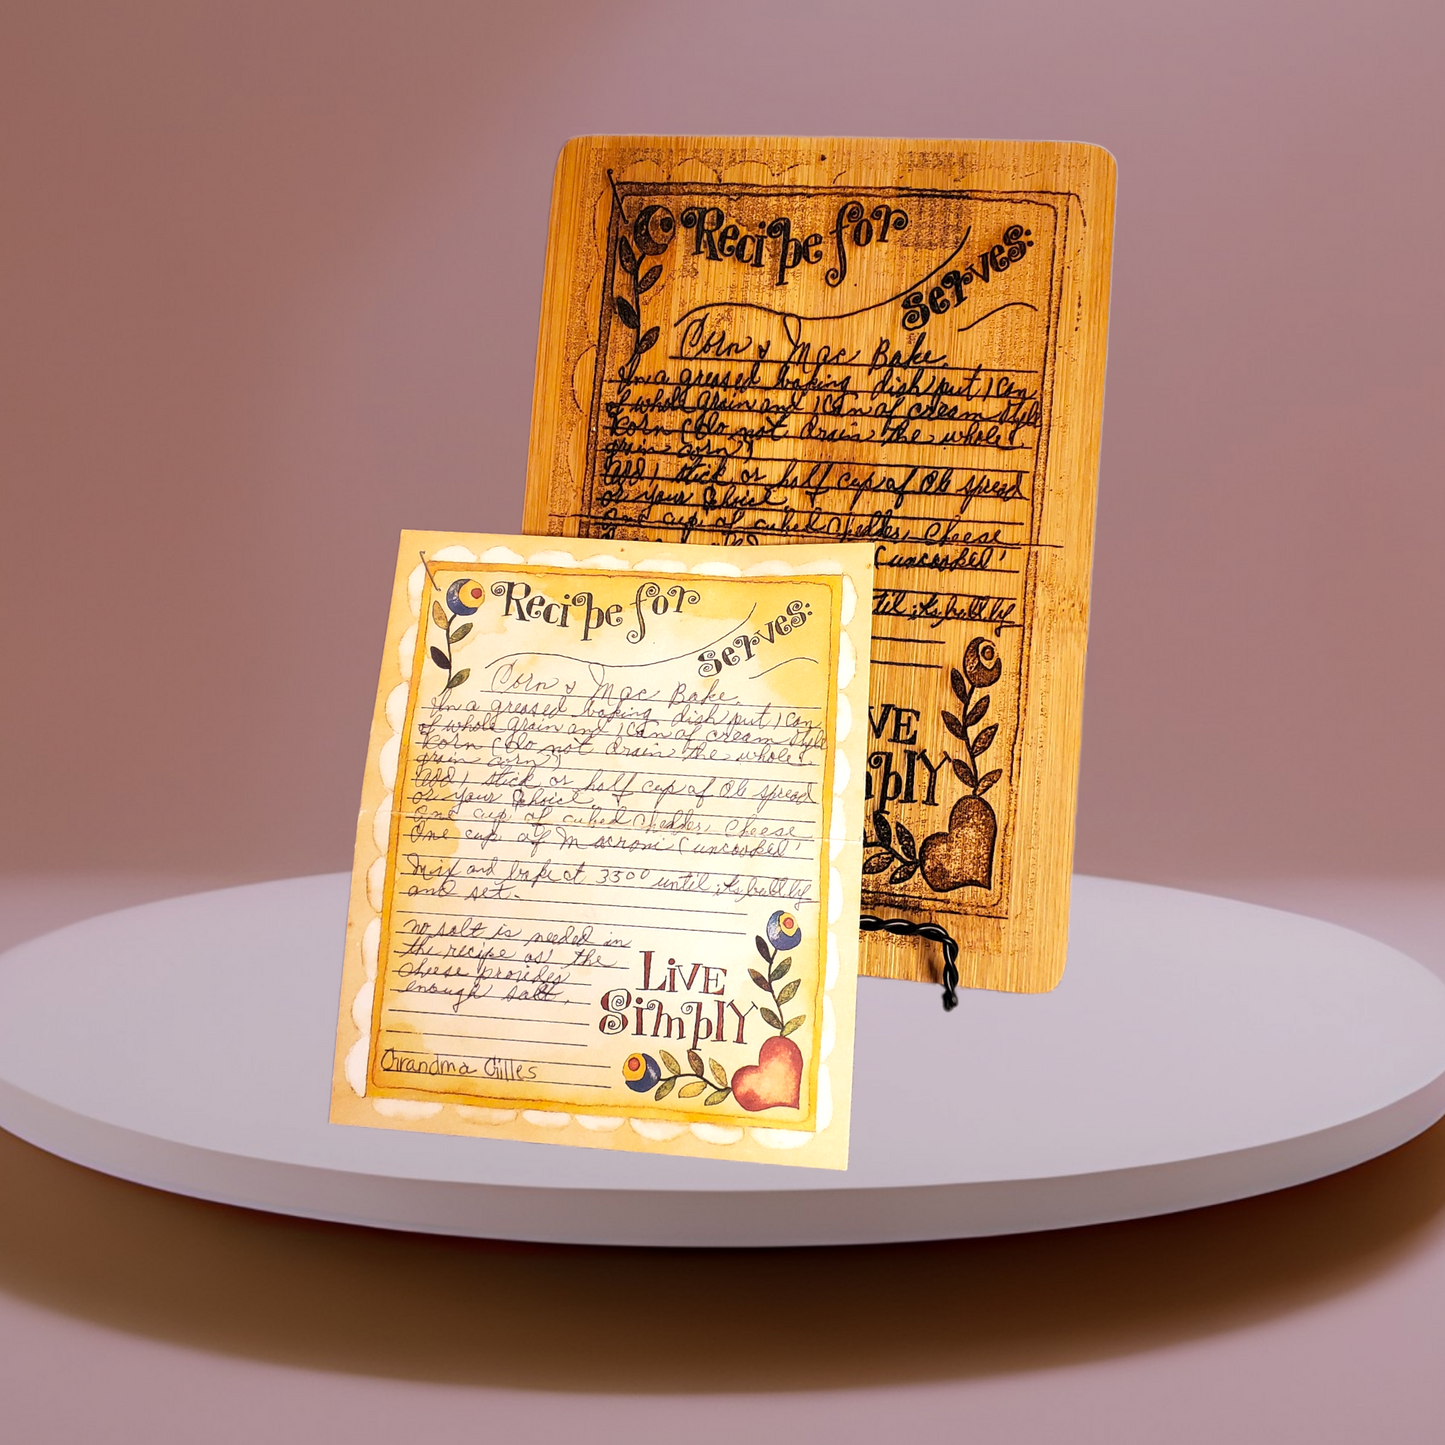 Recipe for
Serves:
Corn & Mac Bake.
In a greased baking dish put 1 can
of whole grain and 1 can of cream style
Korn (Do not drain the whole
grain corn)
Add 1 stick or half cup of Ole spread
or your choice.
One cup of cubed chedder cheese
(uncooked)
until its bubbly
VE
mplY
Recipe for
Serves:
Corn & Mac Bake.
In a greased baking dish put 1 can
of whole grain and 1 can of cream style
Korn (Do not drain the whole
grain corn)
Add 1 stick or half cup of Ole spread
or your choice.
One cup of cubed chedder cheese
One cup of Macroni (uncooked)
Mix and bake at 350° until its bubbly
and set.
no salt is needed in
the recipe as the
cheese provides
enough salt.
Live
Simply
Grandma Gilles